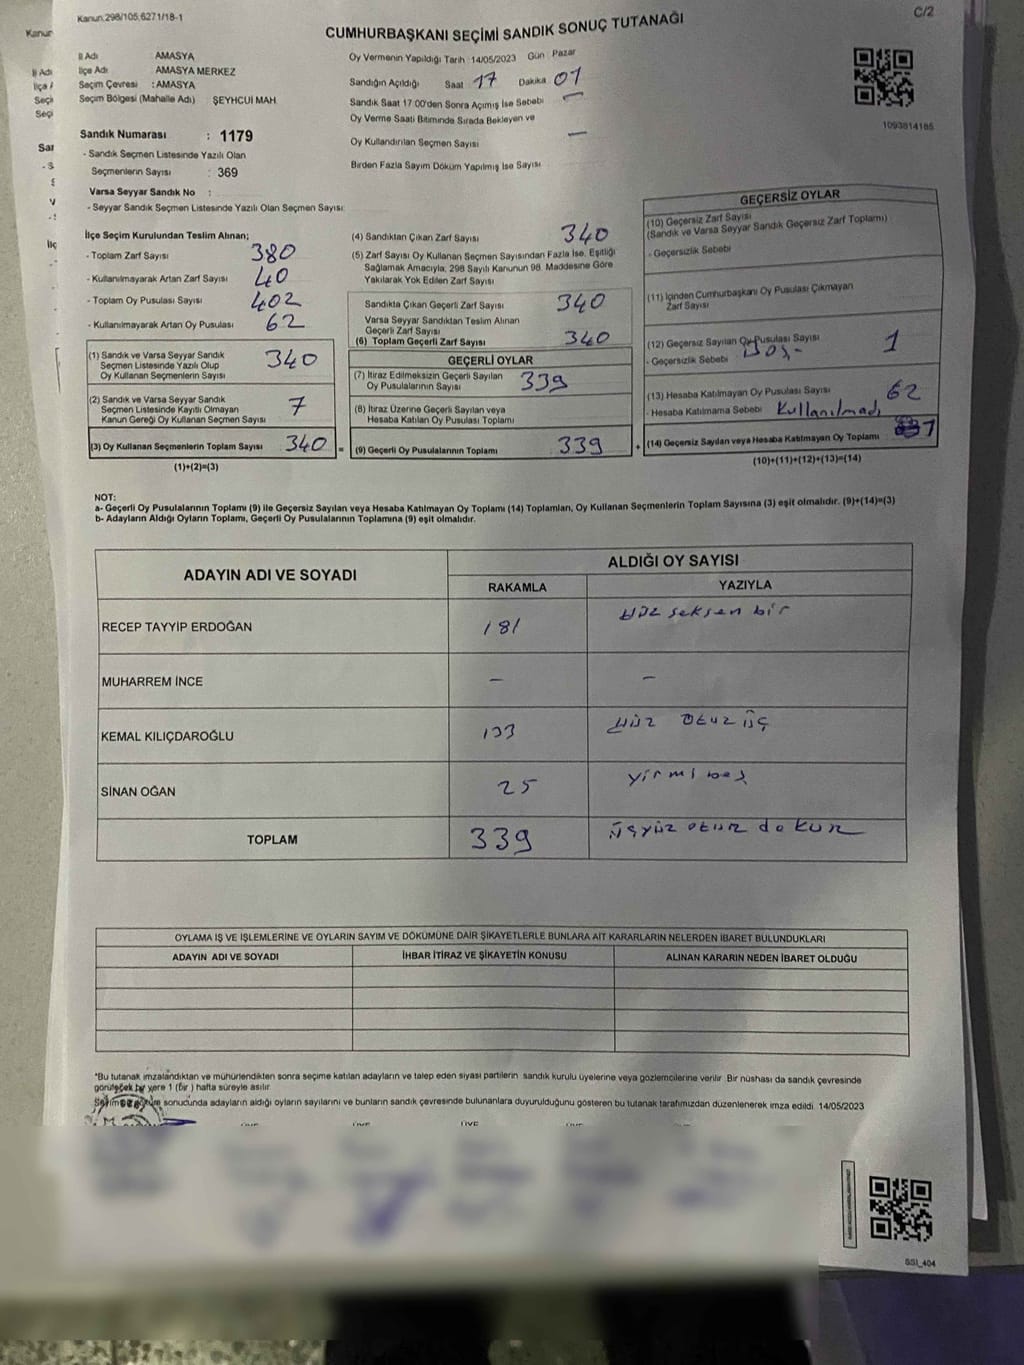 Kanun:298/105;6271/18-1
C/2
CUMHURBAŞKANI SEÇİMİ SANDIK SONUÇ TUTANAĞI
İl Adı AMASYA
İlçe Adı AMASYA MERKEZ
Seçim Çevresi : AMASYA
Seçim Bölgesi (Mahalle Adı) ŞEYHCUİ MAH.
Oy Vermenin Yapıldığı Tarih : 14/05/2023 Gün : Pazar
Sandığın Açıldığı Saat 17 Dakika 01
Sandık Saat 17:00'den Sonra Açımış İse Sebebi —
Oy Verme Saati Bitiminde Sırada Bekleyen ve
Oy Kullandırılan Seçmen Sayısı —
Birden Fazla Sayım Döküm Yapılmış İse Sayısı
1093814185
Sandık Numarası : 1179
- Sandık Seçmen Listesinde Yazılı Olan
Seçmenlerin Sayısı : 369
Varsa Seyyar Sandık No :
- Seyyar Sandık Seçmen Listesinde Yazılı Olan Seçmen Sayısı:
İlçe Seçim Kurulundan Teslim Alınan;
- Toplam Zarf Sayısı 380
- Kullanılmayarak Artan Zarf Sayısı 40
- Toplam Oy Pusulası Sayısı 402
- Kullanılmayarak Artan Oy Pusulası 62
(1) Sandık ve Varsa Seyyar Sandık
Seçmen Listesinde Yazılı Olup
Oy Kullanan Seçmenlerin Sayısı 340
(2) Sandık ve Varsa Seyyar Sandık
Seçmen Listesinde Kayıtlı Olmayan
Kanun Gereği Oy Kullanan Seçmen Sayısı 7
(3) Oy Kullanan Seçmenlerin Toplam Sayısı 340 =
(1)+(2)=(3)
(4) Sandıktan Çıkan Zarf Sayısı 340
(5) Zarf Sayısı Oy Kullanan Seçmen Sayısından Fazla İse, Eşitliği
Sağlamak Amacıyla, 298 Sayılı Kanunun 98. Maddesine Göre
Yakılarak Yok Edilen Zarf Sayısı
Sandıkta Çıkan Geçerli Zarf Sayısı 340
Varsa Seyyar Sandıktan Teslim Alınan
Geçerli Zarf Sayısı
(6) Toplam Geçerli Zarf Sayısı 340
GEÇERLİ OYLAR
(7) İtiraz Edilmeksizin Geçerli Sayılan
Oy Pusulalarının Sayısı 339
(8) İtiraz Üzerine Geçerli Sayılan veya
Hesaba Katılan Oy Pusulası Toplamı
(9) Geçerli Oy Pusulalarının Toplamı 339 +
GEÇERSİZ OYLAR
(10) Geçersiz Zarf Sayısı
(Sandık ve Varsa Seyyar Sandık Geçersiz Zarf Toplamı)
- Geçersizlik Sebebi
(11) İçinden Cumhurbaşkanı Oy Pusulası Çıkmayan
Zarf Sayısı
(12) Geçersiz Sayılan Oy Pusulası Sayısı 1
- Geçersizlik Sebebi
(13) Hesaba Katılmayan Oy Pusulası Sayısı 62
- Hesaba Katılmama Sebebi Kullanılmadı
(14) Geçersiz Sayılan veya Hesaba Katılmayan Oy Toplamı 1
(10)+(11)+(12)+(13)=(14)
NOT:
a- Geçerli Oy Pusulalarının Toplamı (9) ile Geçersiz Sayılan veya Hesaba Katılmayan Oy Toplamı (14) Toplamları, Oy Kullanan Seçmenlerin Toplam Sayısına (3) eşit olmalıdır. (9)+(14)=(3)
b- Adayların Aldığı Oyların Toplamı, Geçerli Oy Pusulalarının Toplamına (9) eşit olmalıdır.
ADAYIN ADI VE SOYADI ALDIĞI OY SAYISI
RAKAMLA YAZIYLA
RECEP TAYYİP ERDOĞAN 181 yüz seksen bir
MUHARREM İNCE – –
KEMAL KILIÇDAROĞLU 133 yüz otuz üç
SİNAN OĞAN 25 yirmi beş
TOPLAM 339 üçyüz otuz dokuz
OYLAMA İŞ VE İŞLEMLERİNE VE OYLARIN SAYIM VE DÖKÜMÜNE DAİR ŞİKAYETLERLE BUNLARA AİT KARARLARIN NELERDEN İBARET BULUNDUKLARI
ADAYIN ADI VE SOYADI İHBAR İTİRAZ VE ŞİKAYETİN KONUSU ALINAN KARARIN NEDEN İBARET OLDUĞU
*Bu tutanak imzalandıktan ve mühürlendikten sonra seçime katılan adayların ve talep eden siyasi partilerin sandık kurulu üyelerine veya gözlemcilerine verilir. Bir nüshası da sandık çevresinde
görülecek bir yere 1 (bir) hafta süreyle asılır.
sonucunda adayların aldığı oyların sayılarını ve bunların sandık çevresinde bulunanlara duyurulduğunu gösteren bu tutanak tarafımızdan düzenlenerek imza edildi. 14/05/2023
SSI_404